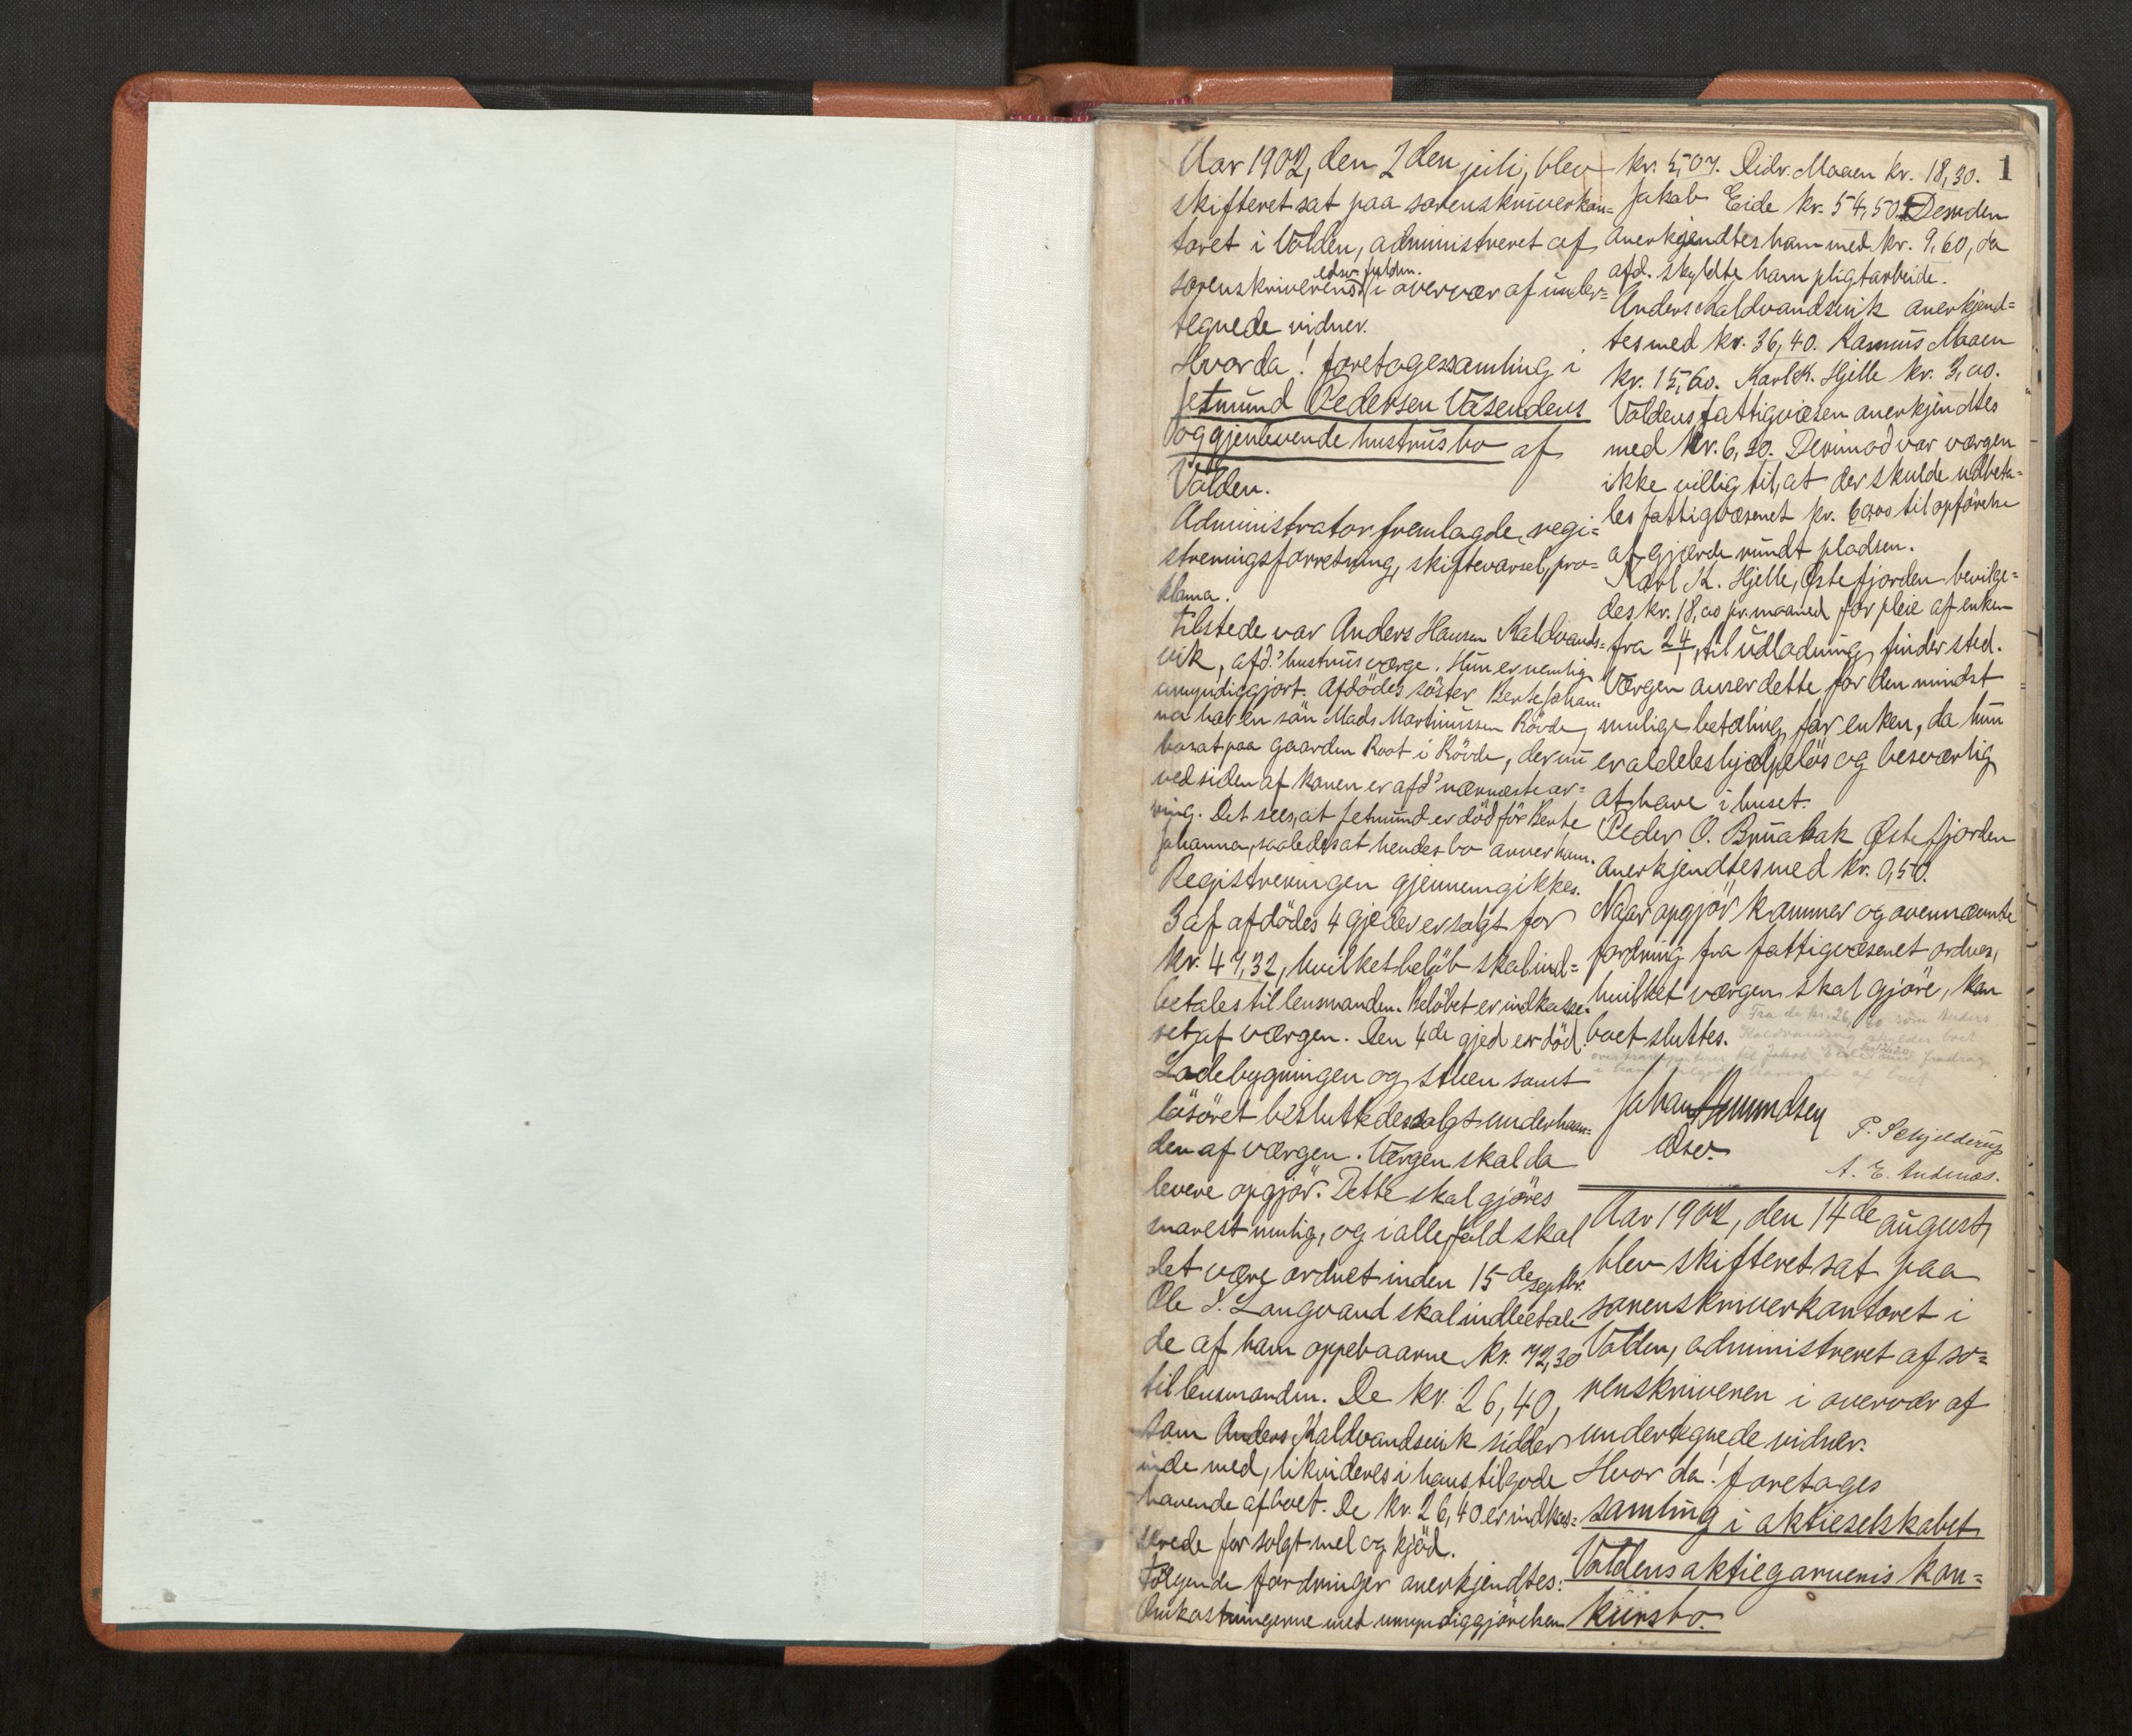 Aar 1902, den 2den juli, blev
skifteret sat paa sorenskriverkon=
toret i Volden, administreret af
sorenskriverens edsv. fuldm. i overvær af under=
tegnede vidner.
Hvorda! foretoges samling i
Jetmund Pedersen Vasendens
og gjenlevende hustrus bo af
Volden.
Administrator fremlagde regi=
streringsforretning, skiftevarsel, pro=
klama.
Tilstede var Anders Hansen Kaldvands=
vik, afd.s hustrus værge. Hun er nemlig
umyndiggjort. Afdödes söster Berte Johan=
na har en sön Mads Martinussen Rövde,
bosat paa gaarden Root i Rövde, der nu
ved siden af konen er afd.s nærmeste ar=
ving. Det sees, at Jetmund er död för Berte
Johanna, saaledes at hendes bo arver ham.
Registreringen gjennemgikkes.
3 af afdödes 4 gjeder er solgt for
kr. 47,32, hvilket belöb skal ind=
betales til lensmanden. Belöbet er indkasse=
ret af værgen. Den 4de gjed er död.
Ladebygningen og stuen samt
lösöret besluttedes solgt underhaan=
den af værgen. Værgen skal da
levere opgjör. Dette skal gjöres
snarest mulig, og i alle fald skal
det være ordnet inden 15de septbr.
Ole P. Langvand skal indbetale
de af ham oppebaarne kr. 72,30
til lensmanden. De kr. 26,40,
som Anders Kaldvandsvik sidder
inde med, likvideres i hans tilgode
havende af boet. De kr. 26,40 er indkas=
serede for solgt mel og kjöd.
Fölgende fordringer anerkjendtes:
Omkostningerne med umyndiggjörelsen
kr. 5,07. Didr. Maaen kr. 18,30. 1
Jakob Eide kr. 54,50. Desuden
anerkjendtes ham med kr. 9,60, da
afd. skyldte ham pligtarbeide.
Anders Kaldvandsvik anerkjend=
tes med kr. 36,40. Rasmus Maaen
kr. 15,60. Karl K. Hjelle kr. 3,00.
Voldens fattigvæsen anerkjendtes
med kr. 6,30. Derimod var værgen
ikke villig til, at der skulde udbeta=
les fattigvæsenet kr. 60,00 til opförelse
af gjærde rundt pladsen.
Karl K. Hjelle, Østefjorden bevilge=
des kr. 18,00 pr. maaned for pleie af enken
fra 24/1 til udlodning finder sted.
Værgen anser dette for den mindst
mulige betaling for enken, da hun
er aldeles hjælpelös og besværlig
at have i huset.
Peder O. Bruabak Østefjorden
anerkjendtes med kr. 0,50.
Naar opgjör kommer og ovennævnte
fordring fra fattigvæsenet ordnes,
hvilket værgen skal gjöre, kan
boet sluttes. Fra de kr. 26,40 som Anders
Kaldvandsvik skylder boet
Johan Amundsen
edsv. P. Schjelderup
A. E. Andenæs.
Aar 1902, den 14de august,
blev skifteret sat paa
sorenskriverkontoret i
Volden, administreret af so=
renskriveren i overvær af
undertegnede vidner.
Hvor da! foretoges
samling i aktieselskabet
Voldens aktiegarveris kon=
kursbo.